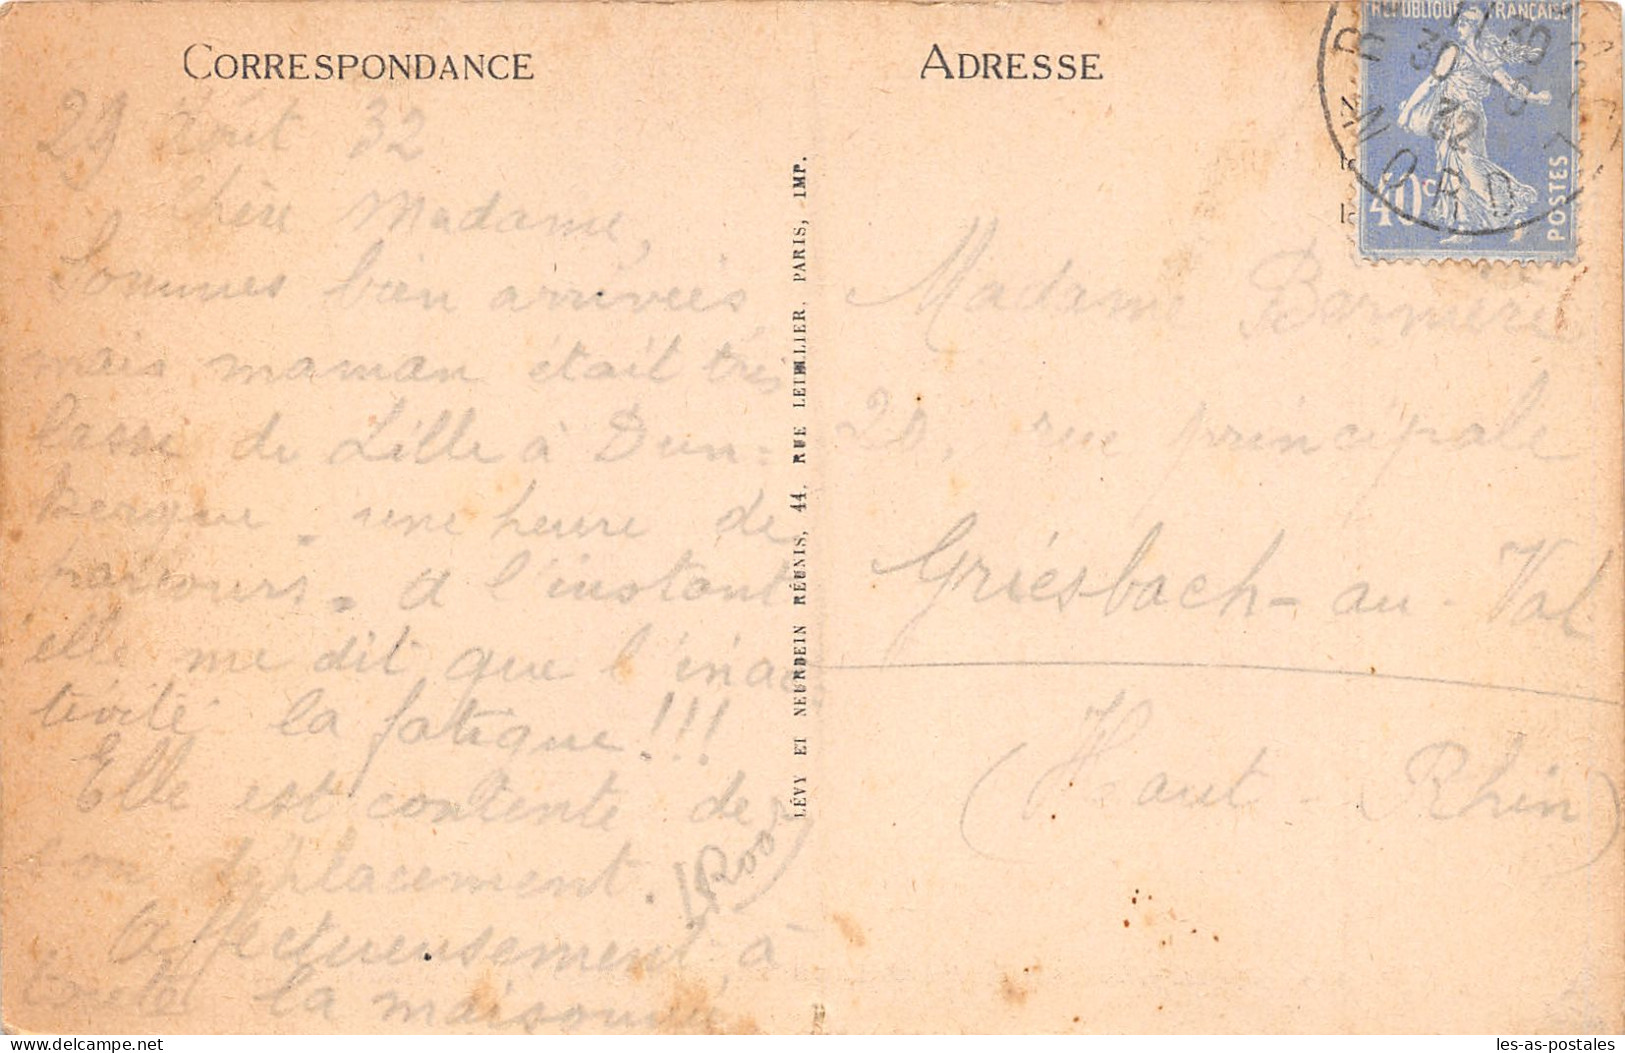 CORRESPONDANCE
29 Août 32
Chère Madame,
Sommes bien arrivées,
mais maman était très
lasse de Lille à Dun-
kerque. une heure de
parcours. A l'instant
elle me dit que l'inac-
tivité la fatigue!!!
Elle est contente de
son déplacement.
Affectueusement à
toute la maisonnée
LÉVY ET NEURDEIN RÉUNIS, 44, RUE LETELLIER, PARIS, IMP.
ADRESSE
RÉPUBLIQUE FRANÇAISE
40c
POSTES
30
32
NORD
Madame
20, rue principale
Griesbach-au-Val
(Haut-Rhin)
les-as-postales
delcampe.net